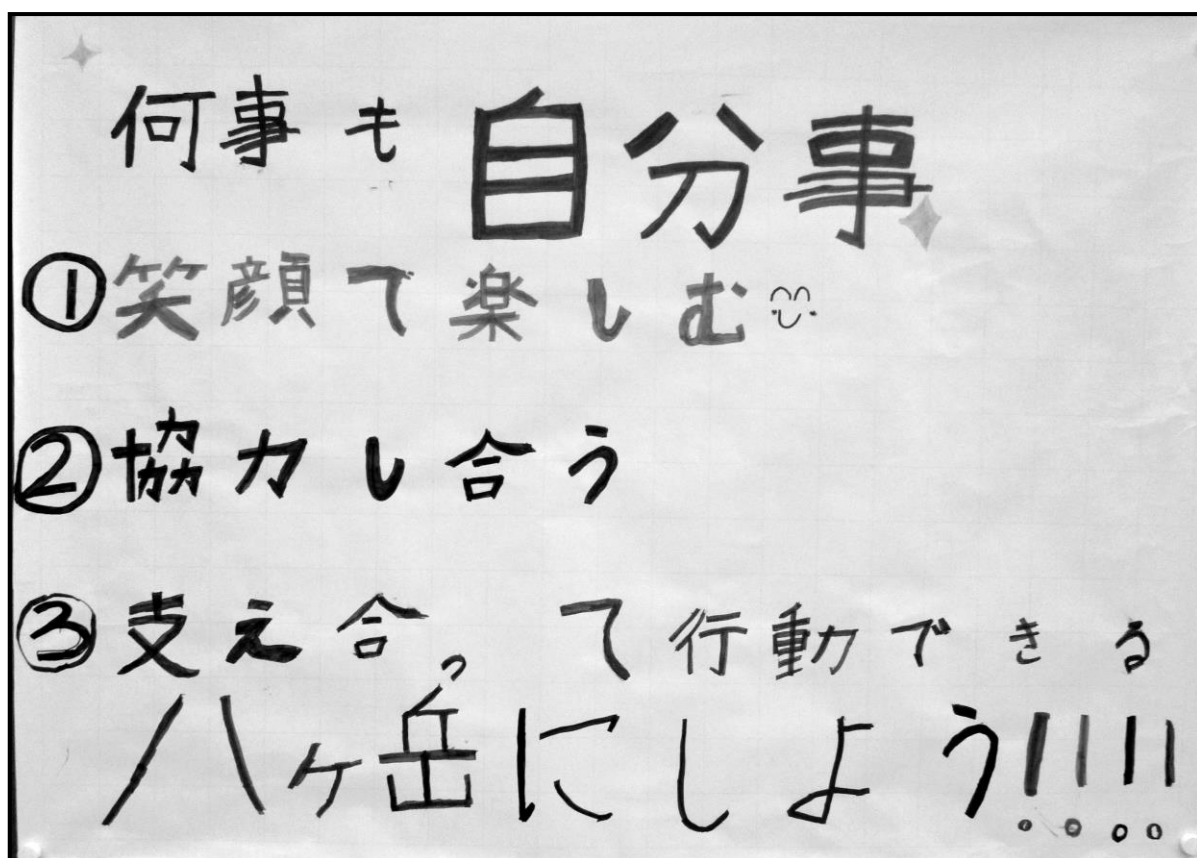 何事も自分事
①笑顔で楽しむ
②協力し合う
③支え合って行動できる
八ヶ岳にしよう!!!!